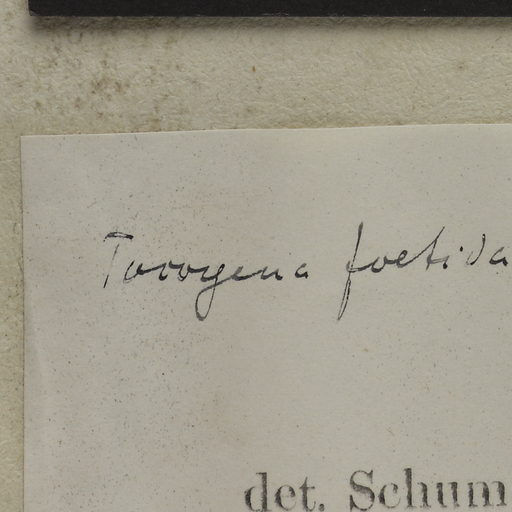 Tocoyena foetida
det. Schum